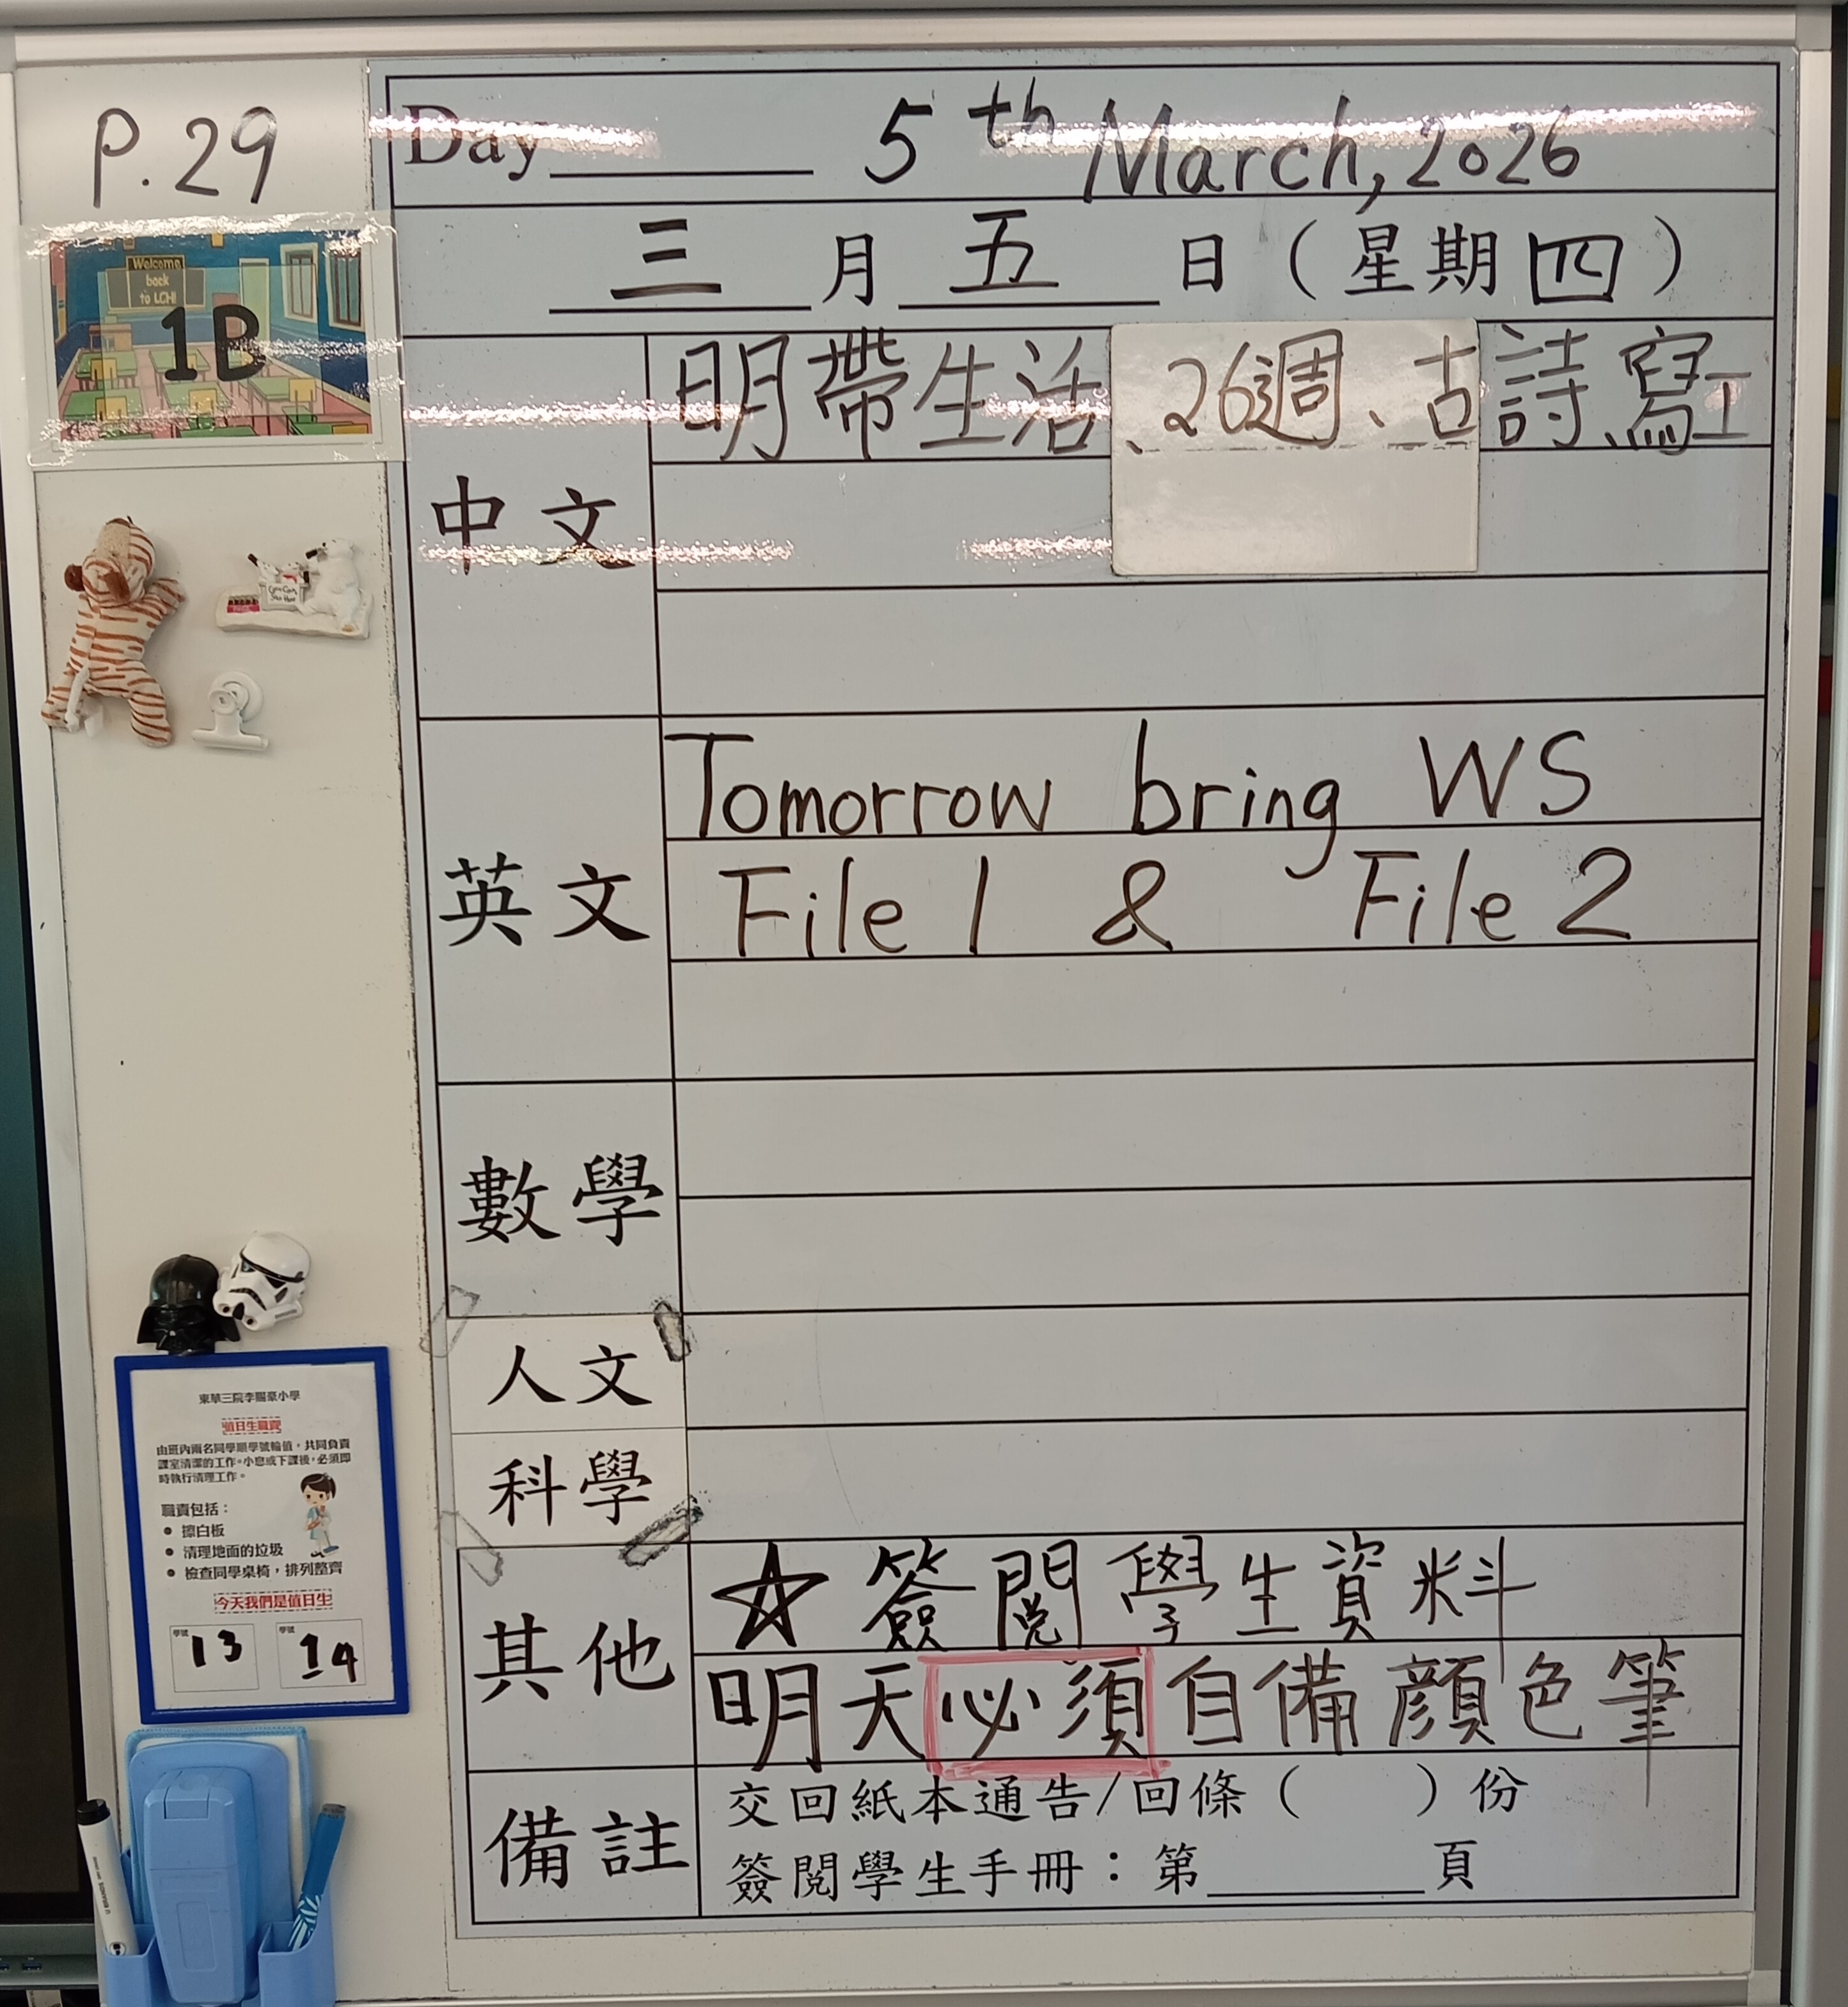 P.29
Day 5th March, 2026
三月五日(星期四)
Welcome
back
to LCH!
1B
中文
明帶生活、26週、古詩、寫工
英文
Tomorrow bring WS
File 1 & File 2
數學
人文
科學
其他
☆簽閱學生資料
明天必須自備顏色筆
備註
交回紙本通告/回條( )份
簽閱學生手冊:第 頁
東華三院李賜豪小學
值日生職責
由班內兩名同學順學號輪值,共同負責
課室清潔的工作。小息或下課後,必須即
時執行清理工作。
職責包括:
• 擦白板
• 清理地面的垃圾
• 檢查同學桌椅,排列整齊
今天我們是值日生
學號 13
學號 14